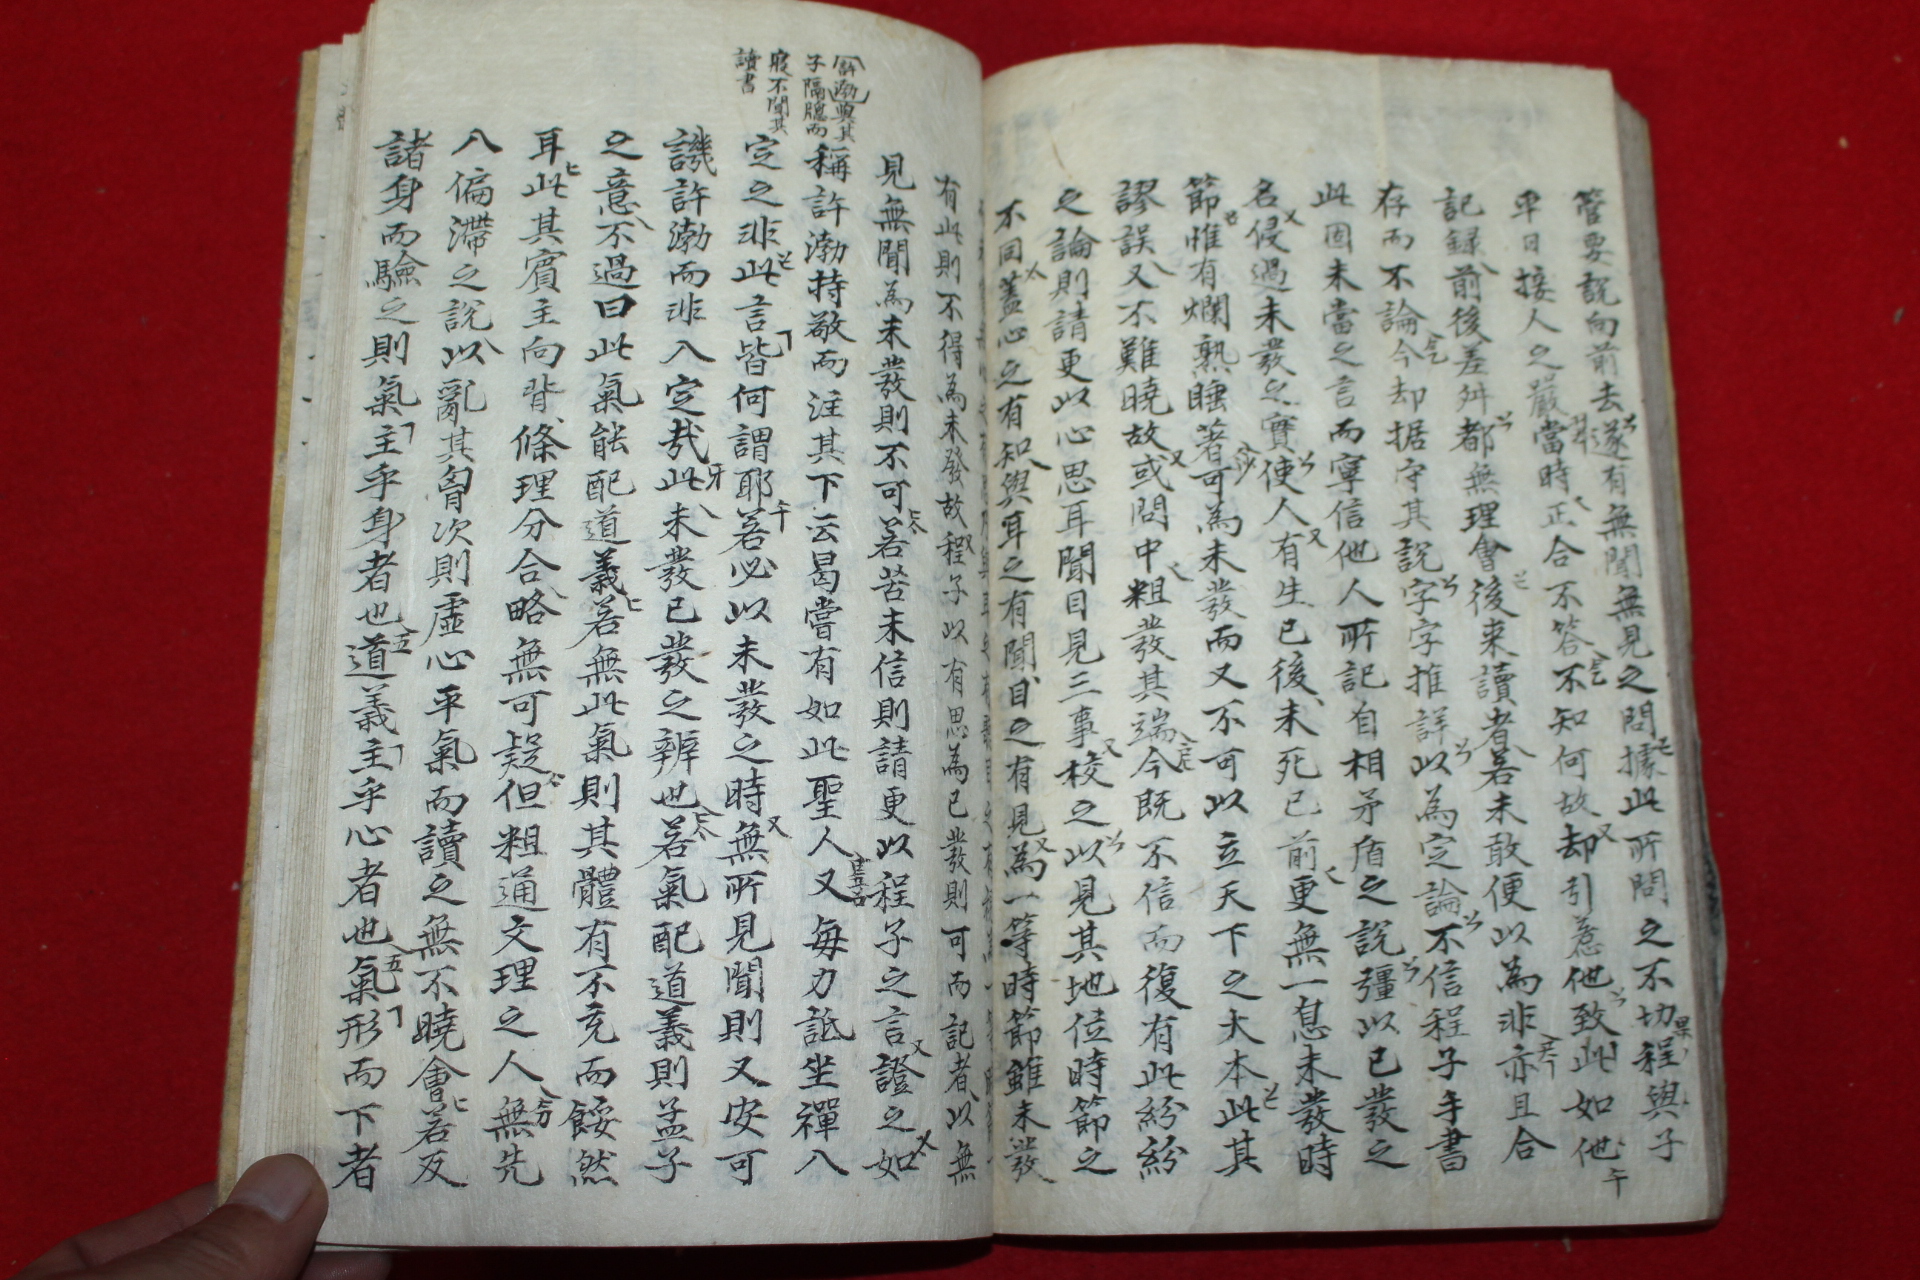 管要說向前去遂有無聞無見之問據此所問之不切程與子
平日接人之嚴當時正合不答不知何故却引惹他致此如他
記録前後差舛都無理會後來讀者若未敢便以為非亦且合
存而不論今却据守其說字字推詳以為定論不信程子手書
此固未當之言而寧信他人所記自相矛盾之說彊以已發之
名侵過未發之實使人有生已後未死已前更無一息未發時
節惟有爛熟睡著可為未發而又不可以立天下之大本此其
謬誤又不難曉故或問中粗發其端今既不信而復有此紛紛
之論則請更以心思耳聞目見三事校之以見其地位時節之
不同蓋心之有知與耳之有聞目之有見為一等時節雖未發
有此則不得為未發故程子以有思為已發則可而記者以無
見無聞為未發則不可若苦未信則請更以程子之言證之如
稱許渤持敬而注其下云曷嘗有如此聖人又每力詆坐禪入
定之非此言皆何謂耶若必以未發之時無所見聞則又安可
譏許渤而非入定哉此未發已發之辨也若氣配道義則孟子
之意不過曰此氣能配道義若無此氣則其體有不充而餒然
耳此其賓主向背條理分合略無可疑但粗通文理之人無先
入偏滯之說以亂其胷次則虛心平氣而讀之無不曉會若反
諸身而驗之則氣主乎身者也道義主乎心者也氣形而下者
許渤與其
子隔牕而
寢不聞其
讀書